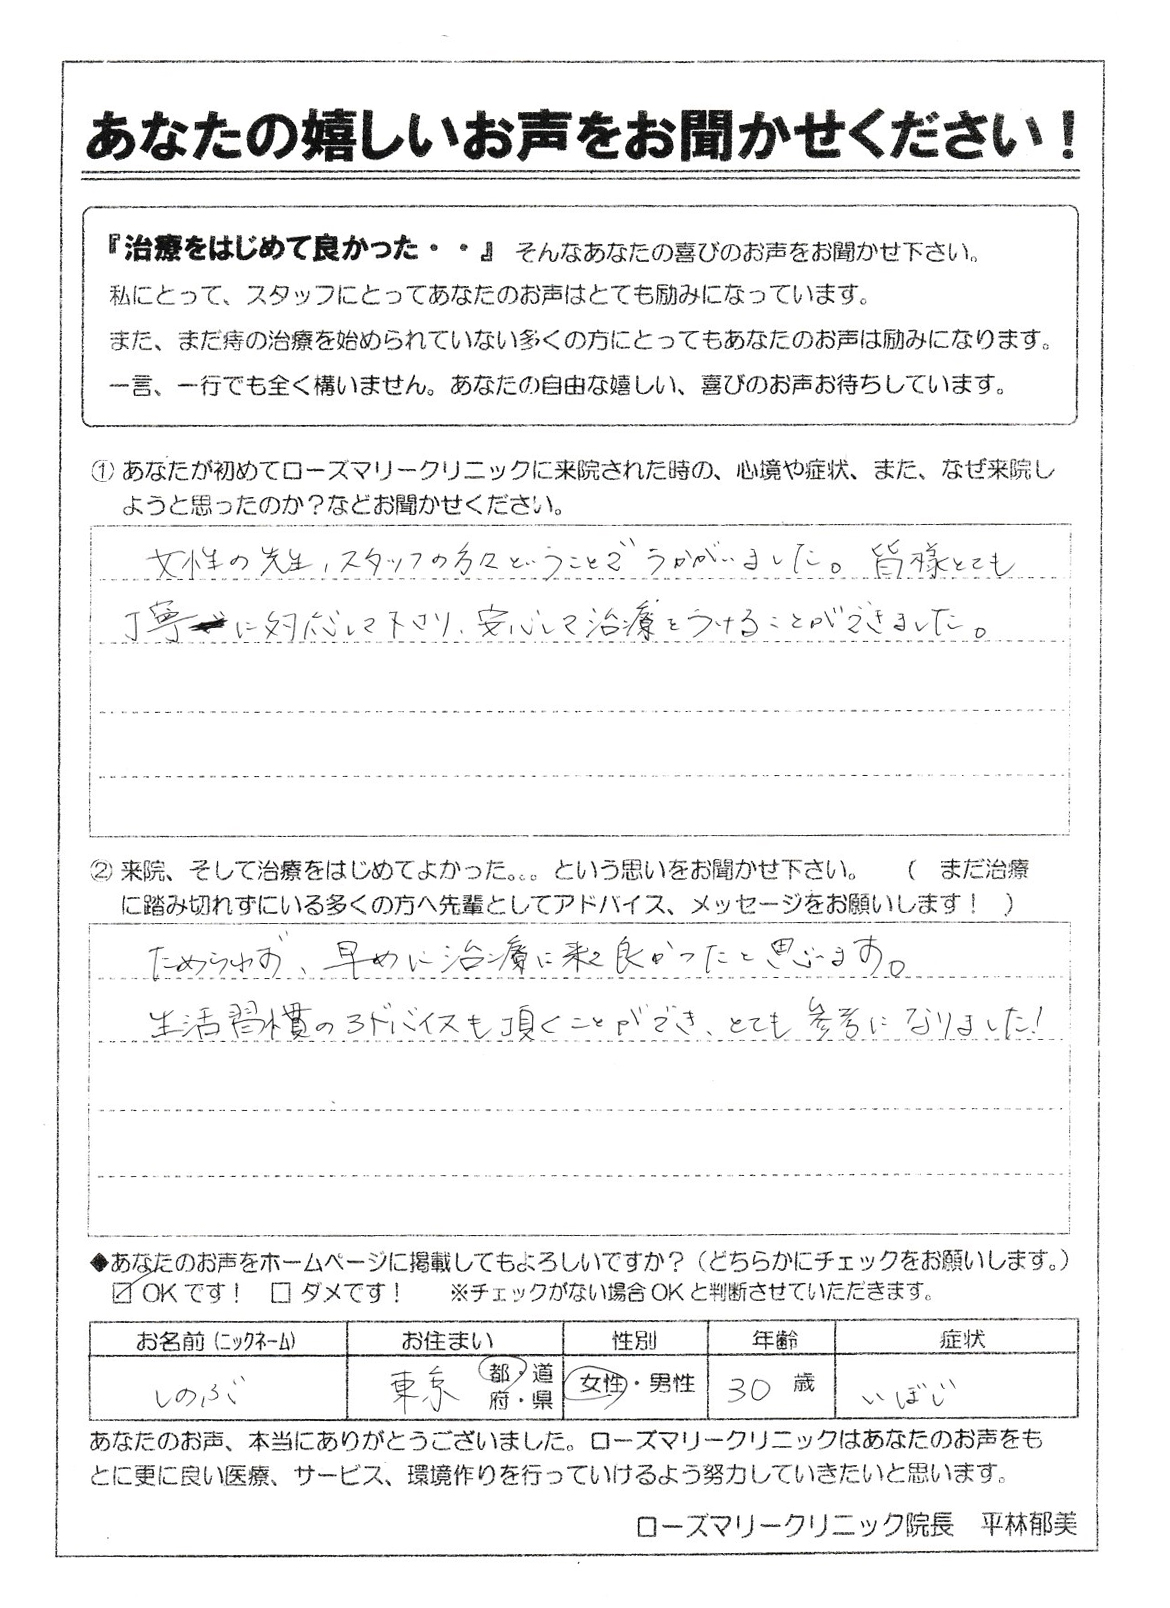 あなたの嬉しいお声をお聞かせください！
『治療をはじめて良かった・・』 そんなあなたの喜びのお声をお聞かせ下さい。
私にとって、スタッフにとってあなたのお声はとても励みになっています。
また、まだ痔の治療を始められていない多くの方にとってもあなたのお声は励みになります。
一言、一行でも全く構いません。あなたの自由な嬉しい、喜びのお声お待ちしています。
① あなたが初めてローズマリークリニックに来院された時の、心境や症状、また、なぜ来院し
ようと思ったのか？などお聞かせください。
女性の先生、スタッフの方々ということでうかがいました。皆様とても
丁寧に対応して下さり、安心して治療をうけることができました。
② 来院、そして治療をはじめてよかった。。。という思いをお聞かせ下さい。 （ まだ治療
に踏み切れずにいる多くの方へ先輩としてアドバイス、メッセージをお願いします！ ）
ためらわず、早めに治療に来て良かったと思います。
生活習慣のアドバイスも頂くことができ、とても参考になりました！
◆あなたのお声をホームページに掲載してもよろしいですか？（どちらかにチェックをお願いします。）
☑ OKです！ □ ダメです！ ※チェックがない場合OKと判断させていただきます。
お名前（ﾆｯｸﾈｰﾑ） お住まい 性別 年齢 症状
しのぶ 東京 都・道府・県 女性・男性 30 歳 いぼじ
あなたのお声、本当にありがとうございました。ローズマリークリニックはあなたのお声をも
とに更に良い医療、サービス、環境作りを行っていけるよう努力していきたいと思います。
ローズマリークリニック院長 平林郁美